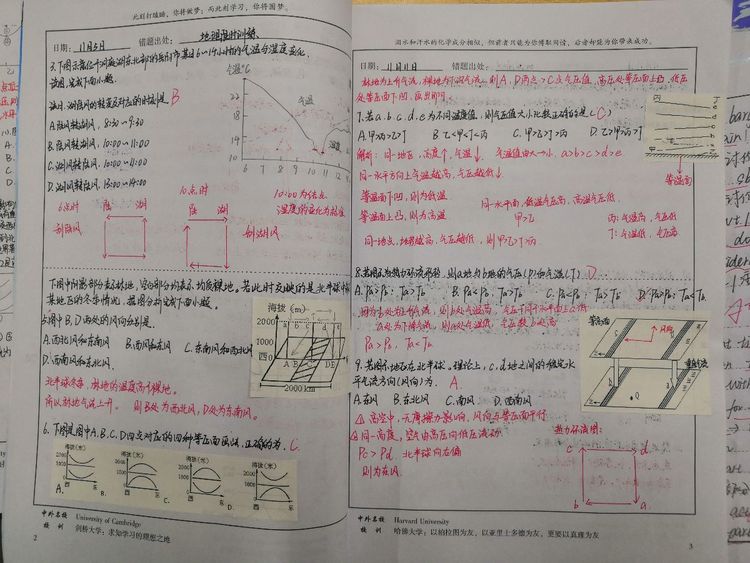 此刻打瞌睡，你将做梦；而此刻学习，你将圆梦。
日期：11月5日 错题出处： 地理限时训练
气温℃
22
18
14
10
气温
湖度
6 7 8 9 10 11 12
读图，完成下面小题。
B
A.陆风转湖风，8:30~9:30
B.陆风转湖风，10:00~11:00
C.湖风转陆风，10:00~11:00
D.湖风转陆风，13:00~14:00
6点时 陆 湖
刮陆风
10点时
陆 湖
刮湖风
10:00为结点
湿度的变化为标准
下图中阴影部分表示林地，空白部分均表示均质裸地。若此时反映的是北半球中
某地区的冬季情况，据图分析完成下面小题。
5.图中B、D两处的风向分别是
A.西北风和东南风 B.西风和东风 C.东南风和西北风
D.西南风和东北风
海拔（m）
2000
1000
0
西
A B D E
2000km
北半球冬季，林地的温度高于裸地。
所以林地气流上升。 则B处为西北风，D处为东南风。
6.下图是图中A、B、C、D四点对应的四种等压面画法，正确的为 C
海拔（米）
2000
1000
西 东
A.
海拔（米）
2000
1000
西 东
B.
海拔（米）
2000
1000
西 东
C.
海拔（米）
2000
1000
西 东
D.
中外名校 University of Cambridge
校 训 剑桥大学：求知学习的理想之地
2
泪水和汗水的化学成分相似，但前者只能为你博取同情，后者却能为你带来成功。
日期：11月11日 错题出处：
林地为上升气流，裸地为下沉气流。则A、D两点>C点气压值，高压处等压面上凸，低压
处等压面下凹。
7.若a.b.c.d.e为不同温度值，则气压值大小比较正确的是（C）
A.甲>丙>乙>丁 B.乙<甲<丁<丙 C.甲>乙>丁>丙 D.乙>甲>丙>丁
等温面
解析：同一地区，高度↑，气温↓， 气温值由大→小，a>b>c>d>e
同一水平方向上气温越高，气压越低↓.
等温面下凹，则为低温
等温面上凸，则为高温
同一水平面，低温气压高，高温气压低.
甲>乙
丙：气温高，气压低
丁：气温低，气压高
同一地点，地势越高，气压越低，则甲>乙>丁>丙
8.若图示为热力环流形势，则a地与b地的气压(P)和气温(T) D
A.Pa>Pb；Ta>Tb B.Pa<Pb；Ta>Tb C.Pa<Pb；Ta>Tb D.Pa>Pb；Ta<Tb
Pa>Pb，Ta<Tb
等高面
风向
垂直气流
9.若图示地区在北半球。理论上，c.d地之间的稳定水
平气流方向（风向）为： A.
A.东风 B.东北风 C.南风 D.西南风
①高空中，无摩擦力影响，风向与等压面平行
②同一高度，空气由高压向低压流动
Pc>Pd，北半球向右偏
则为东风.
热力环流图：
c d
b a
中外名校 Harvard University
校 训 哈佛大学：以柏拉图为友，以亚里士多德为友，更要以真理为友
3